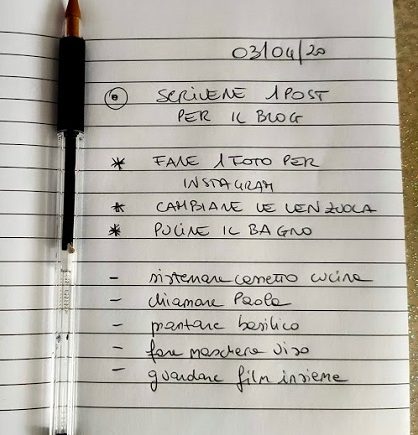 03/04/20
SCRIVERE 1 POST
PER IL BLOG
* FARE 1 FOTO PER
INSTAGRAM
* CAMBIARE LE LENZUOLA
* PULIRE IL BAGNO
- sistemare cassetto cucina
- chiamare Paola
- piantare basilico
- fare maschera viso
- guardare film insieme